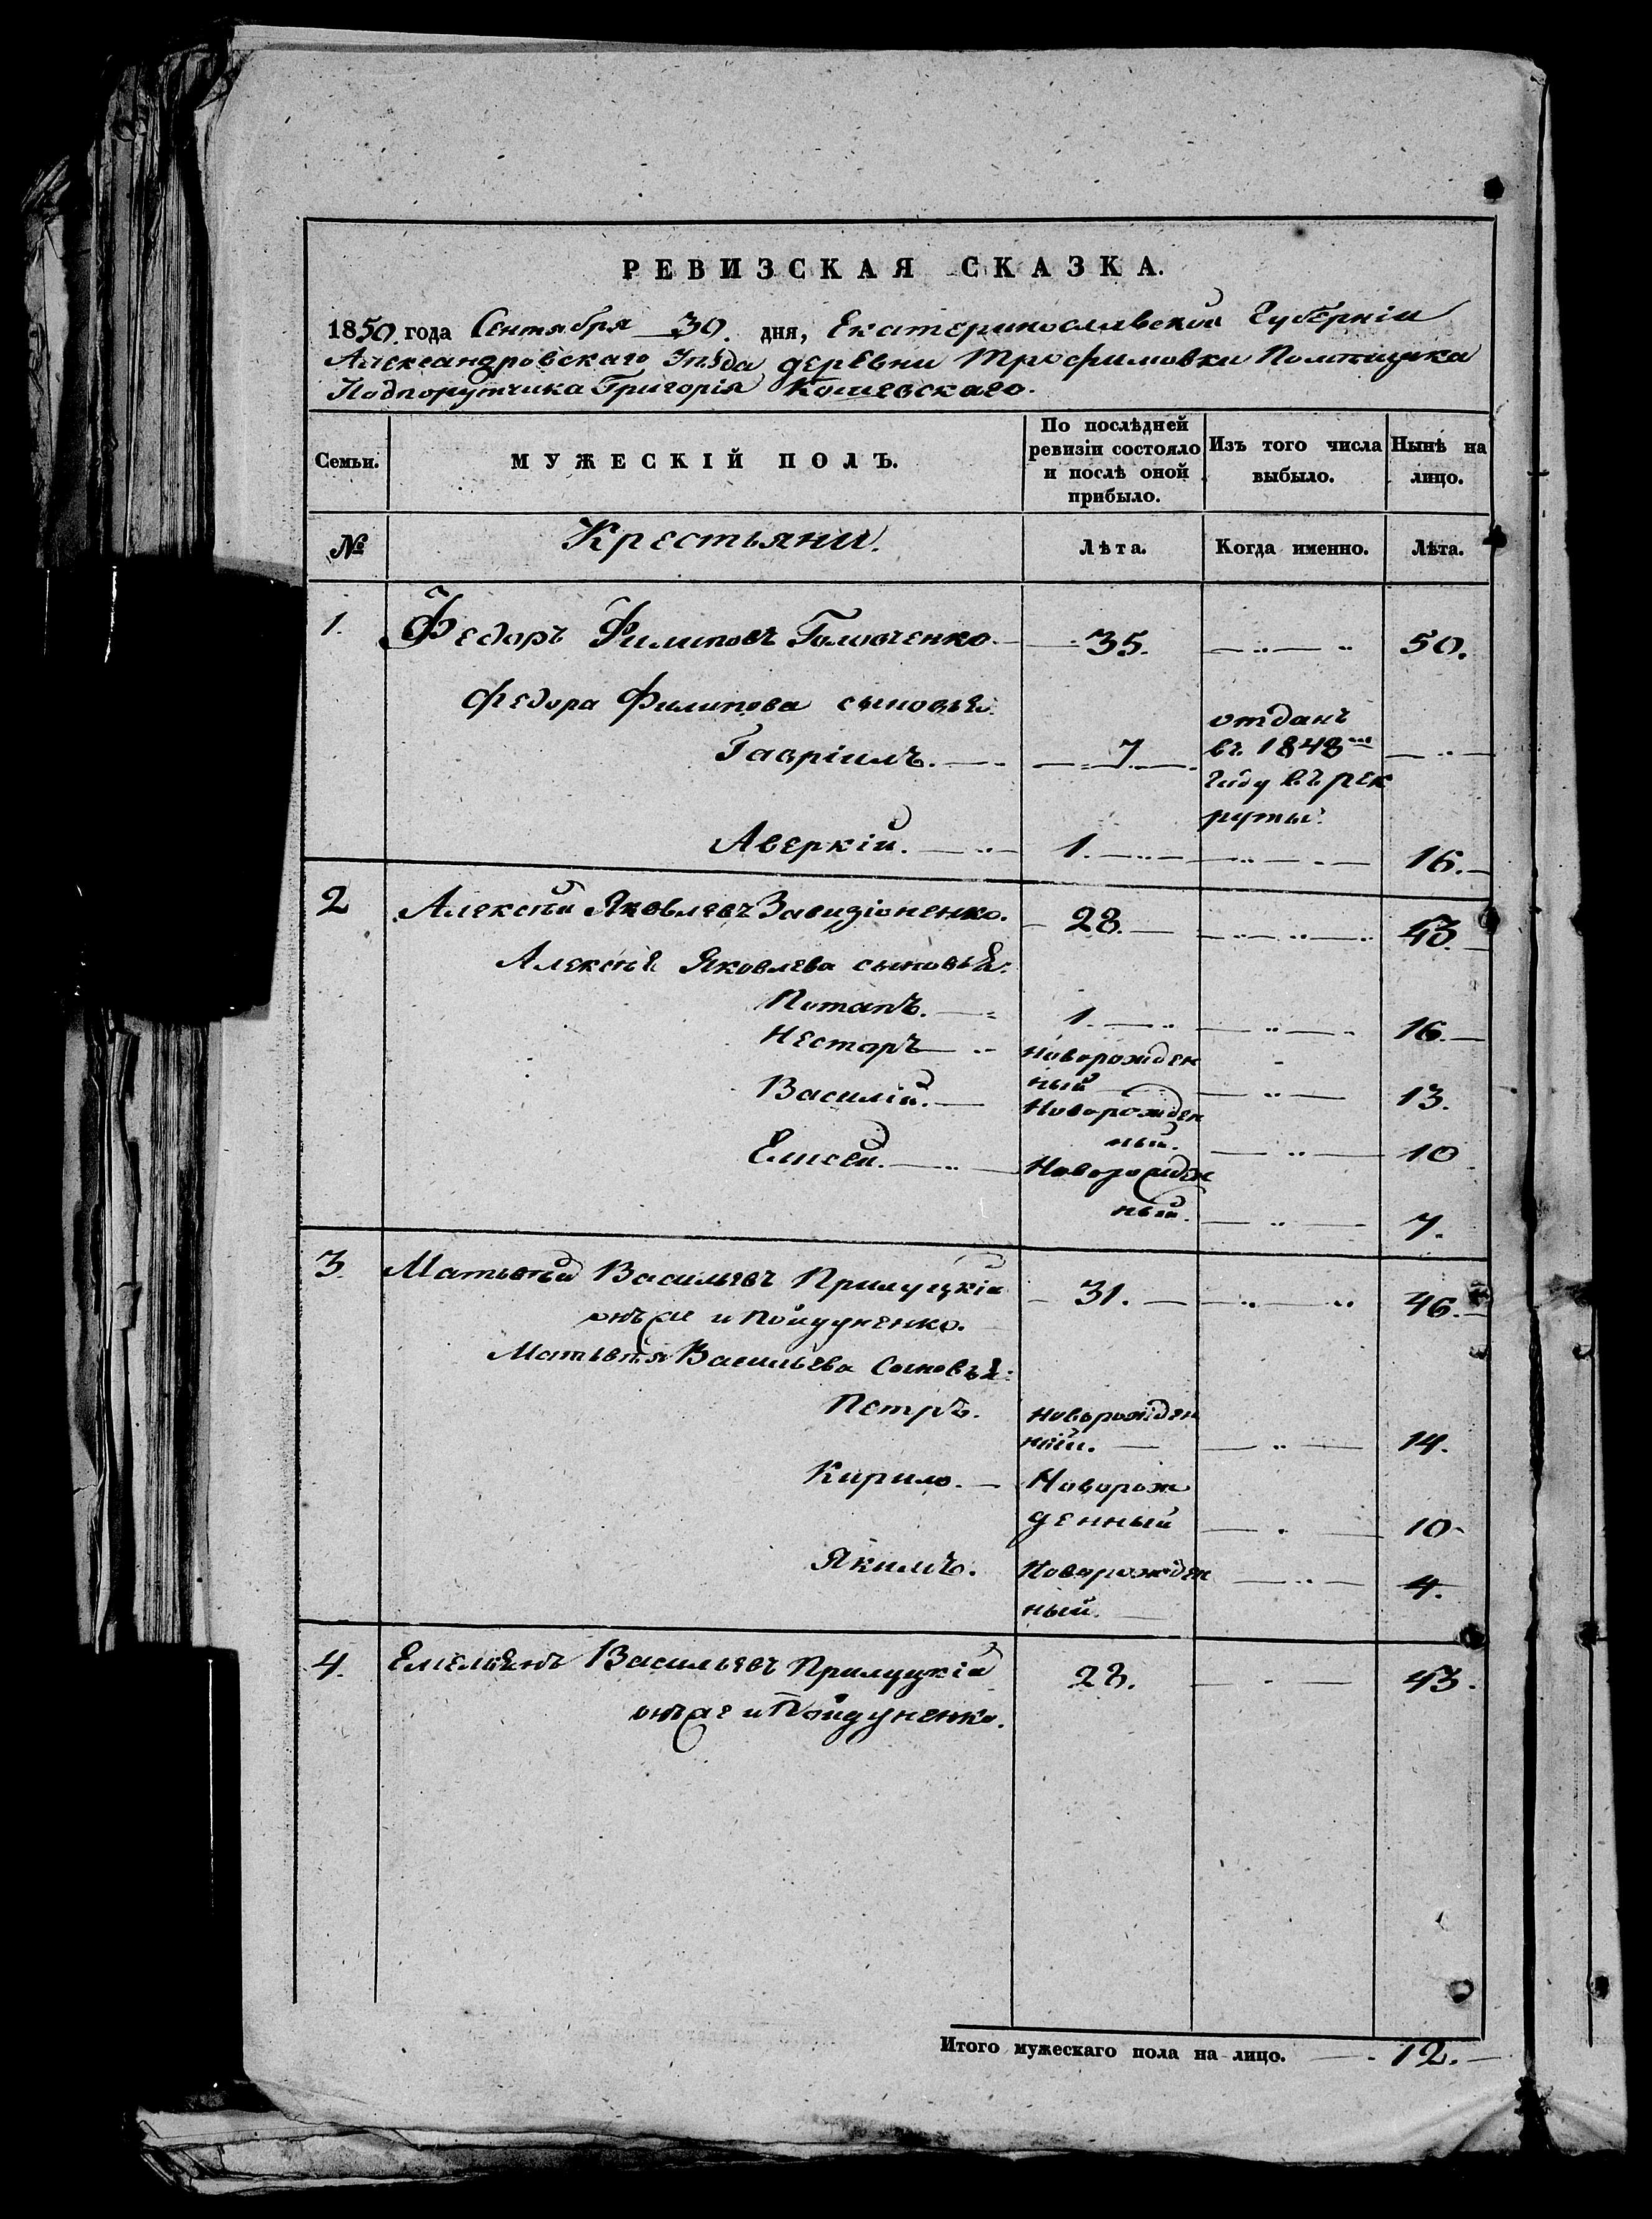 РЕВИЗСКАЯ СКАЗКА.
1850. года Сентября 30. дня, Екатеринославской Губерніи
Александровскаго Уѣзда деревни Трофимовки Помѣщика
Подпорутчика Григорія Кошевскаго.
Семьи. МУЖЕСКІЙ ПОЛЪ. По послѣдней ревизіи состояло и послѣ оной прибыло. Изъ того числа выбыло. Нынѣ на лицо.
№ Крестьяни. Лѣта. Когда именно. Лѣта.
1. Федоръ Филиповъ Головченко 35. 50.
Федора Филипова сыновья:
Гавріилъ. 7 отданъ въ 1848 году въ рекруты.
Аверкій. 1. 16.
2 Алексѣй Яковлевъ Завизіоненко. 28. 43.
Алексѣя Яковлева сыновья:
Потапъ. 1. 16.
Несторъ новорожденный 13.
Василій. Новорожденный. 10
Елисей. Новорожденный. 7.
3. Матьвѣй Васильевъ Прилуцкій 31. 46.
онъ же и Пойдуненко.
Матьвѣя Васильева Сыновья:
Петръ. новорожденный. 14.
Кирило. Новорожденный 10
Якимъ. Новорожденный. 4.
4. Емельянъ Васильевъ Прилуцкій 28. 43.
онъ же и Пойдуненко.
Итого мужескаго пола на лицо. 12.